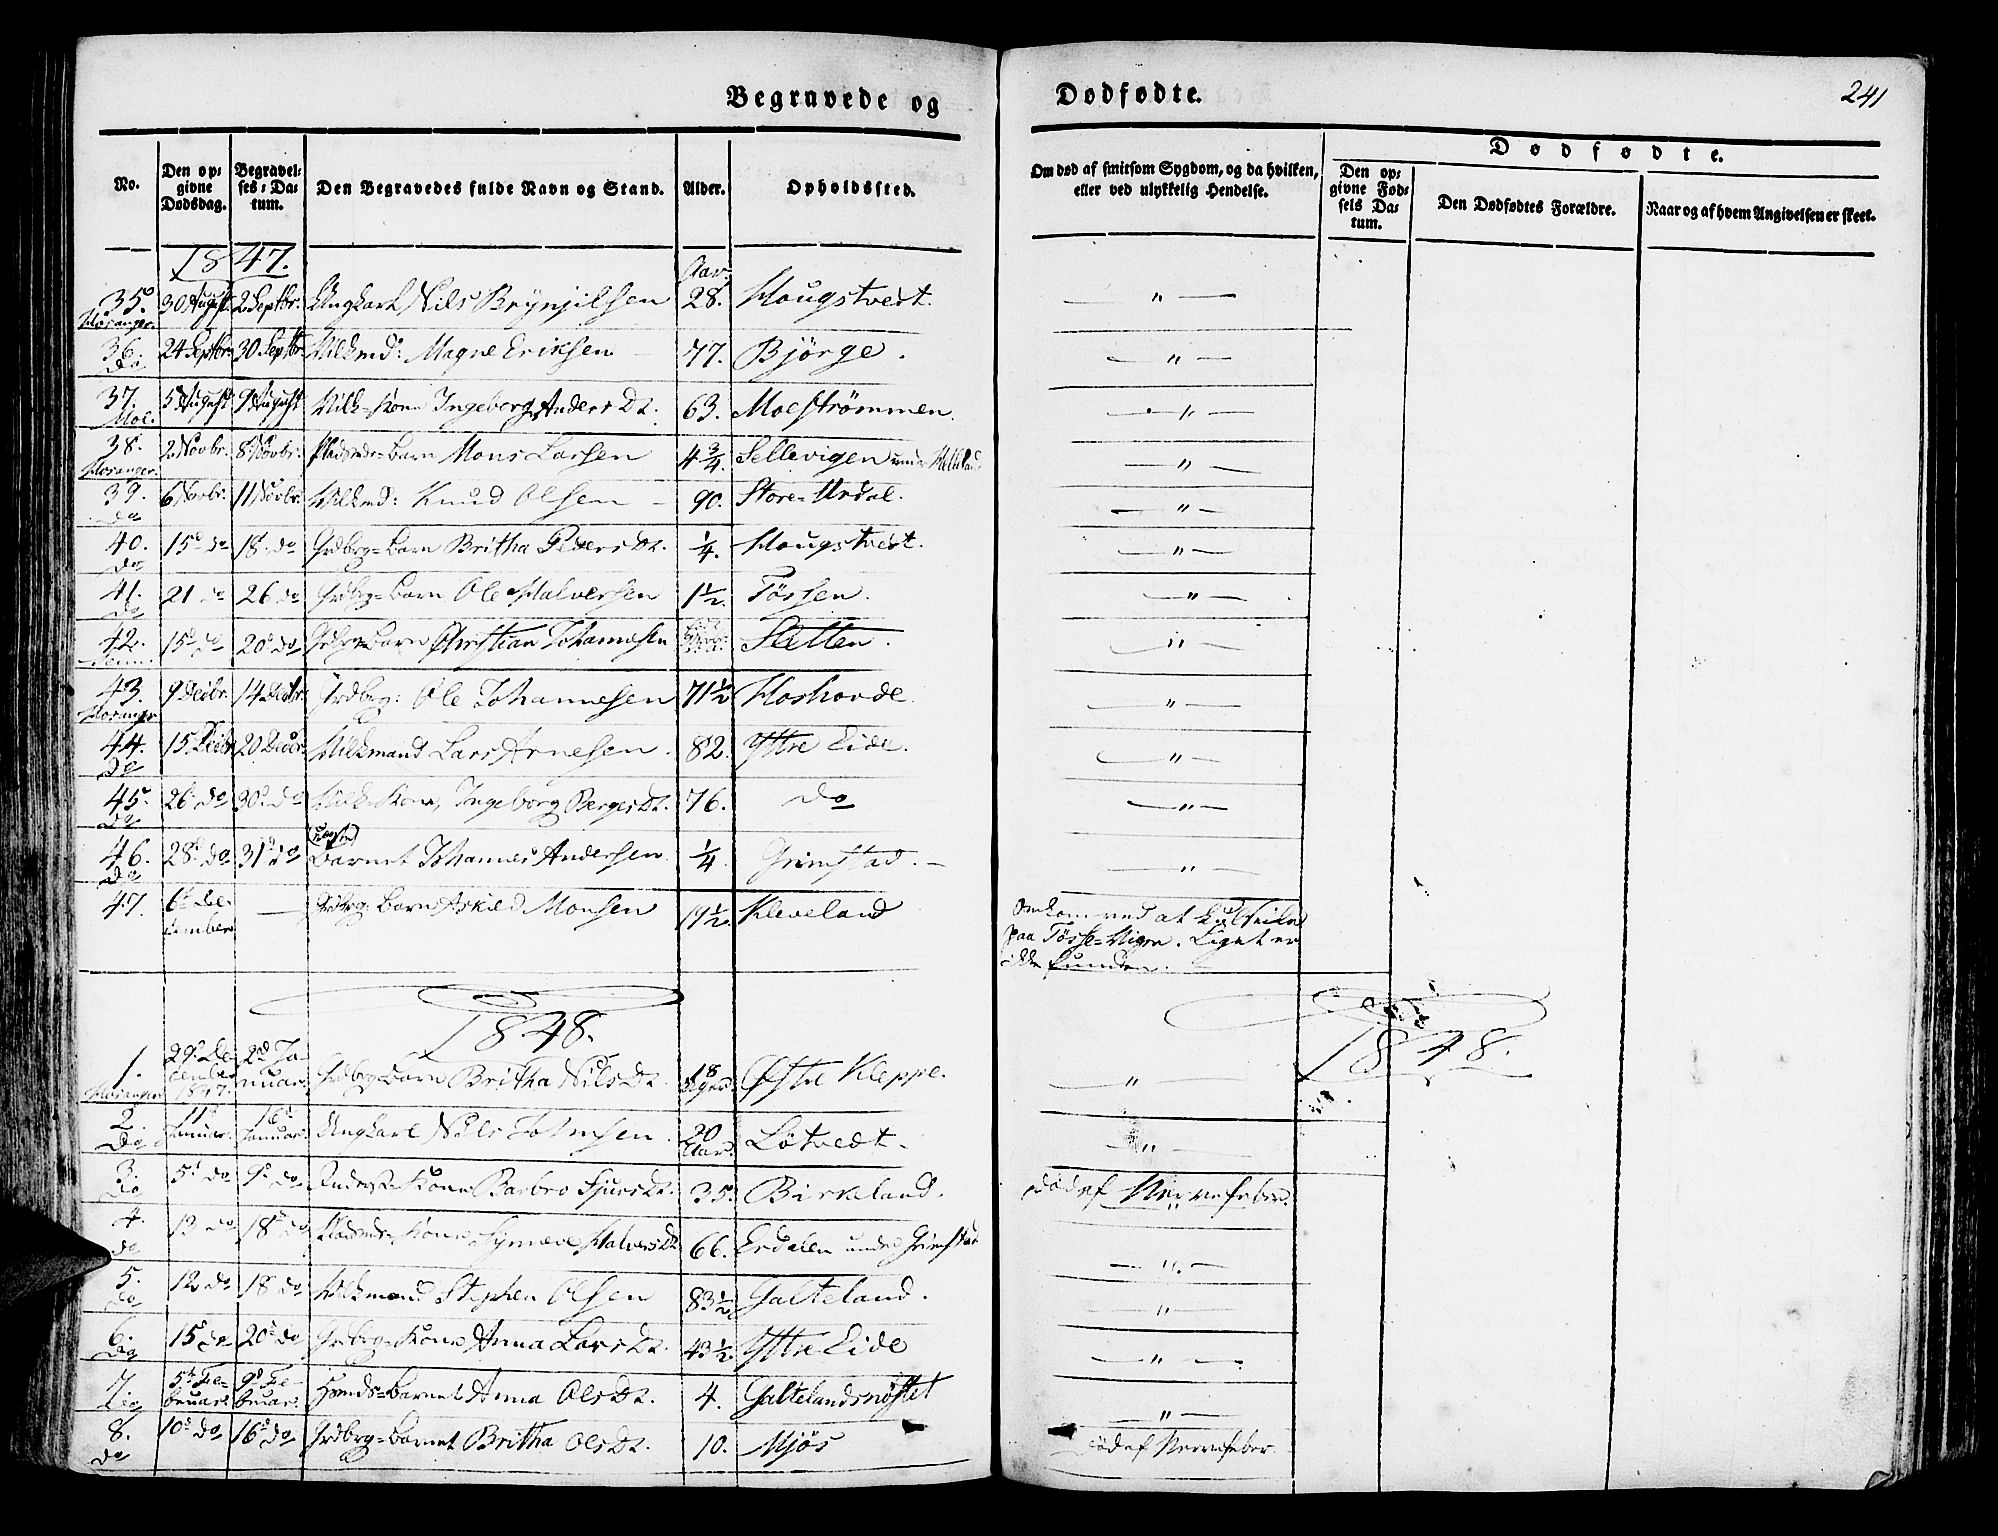 Begravede og
Dødfødte.
241
No.
Den opgivne Dødsdag.
Begravelses-Datum.
Den Begravedes fulde Navn og Stand.
Alder.
Opholdssted.
Om død af smitsom Sygdom, og da hvilken, eller ved ulykkelig Hendelse.
Dødfødte.
Den opgivne Fødsels Datum.
Den Dødfødtes Forældre.
Naar og af hvem Angivelsen er skeet.
1847.
Aar.
35. Hosanger. 30 August 2 Septbr. Ungkarl Nils Brynjilsen 28. Hougstvedt. "
36. do 24 Septbr 30 Septbr Vilkmd: Magne Eriksen 77. Bjørge. "
37. Moe. 5 August 9 August Vilk-Kone Ingeborg Anders Dt. 63. Moestrømmen. "
38. Hosanger. 2 Novbr. 8 Novbr. Pladsmds-Barn Mons Larsen 4 3/4. Sellevigen under "
39. do 6 Novbr. 11 Novbr. Vilkmd: Knud Olsen 90. Store-Urdal. "
40. do 15 do 18 do Grdbrg-Barn Britha Peders Dt. 1/4. Hougstvedt. "
41. do 21 do 26 do Grdbrg-Barn Ole Halversen 1 1/2. Tøssen. "
42. 15 do 20 do Grdbrg-Barn Christian Johannesen Sletten. "
43. Hosanger 9 Decbr. 14 Decbr. Grdbrg: Ole Johannesen 71 1/2 Hoshovde. "
44. do 15 Decbr 20 Decbr. Vilkmand Lars Arnesen. 82. Ystre Eide. "
45. do 26 do 30 do Vilk-Kone, Ingeborg Berges Dt. 76. do "
46. do 28 do 31 do (uægte) Barnet Johannes Andersen. 1/4 Grimstad. "
47. 6 December — Grdbrg: Barn Askild Monsen 19 1/2. Kleveland Omkom ved at
paa Tøsse-Vigen. Liget er
ikke funden.
1848.
1848.
1. Hosanger 29 December 1847. 2d Januar. Grdbrg-Barn Britha Nils Dt. 18 Dage. Østre Kleppe. "
2. do 11 Januar. 16 Januar. Ungkarl Nils Johnsen. 20 Aar. Løtvedt "
3. do 5 do 9 do Kone Barbro Sjurs Dt. 35. Birkeland. død af Nervefeber.
4. do 13 do 18 do Pladsmds-Kone Synneve Halvers Dt. 66. Erdalen under Grimstad "
5. do 12 do 18 do Vilkmand Stephen Olsen 83 1/2. Galteland. "
6. do 15 do 20 do Grdbrg-Kone Anna Lars Dt. 43 1/2. Ystre Eide "
7. do 5 Februar. 9 Februar. Barnet Anna Ols Dt. 4. Galtelandsnøstet "
8. do 10 do 16 do Grdbrg-Barnet Britha Ols Dt. 10. Mjøs død af Nervefeber